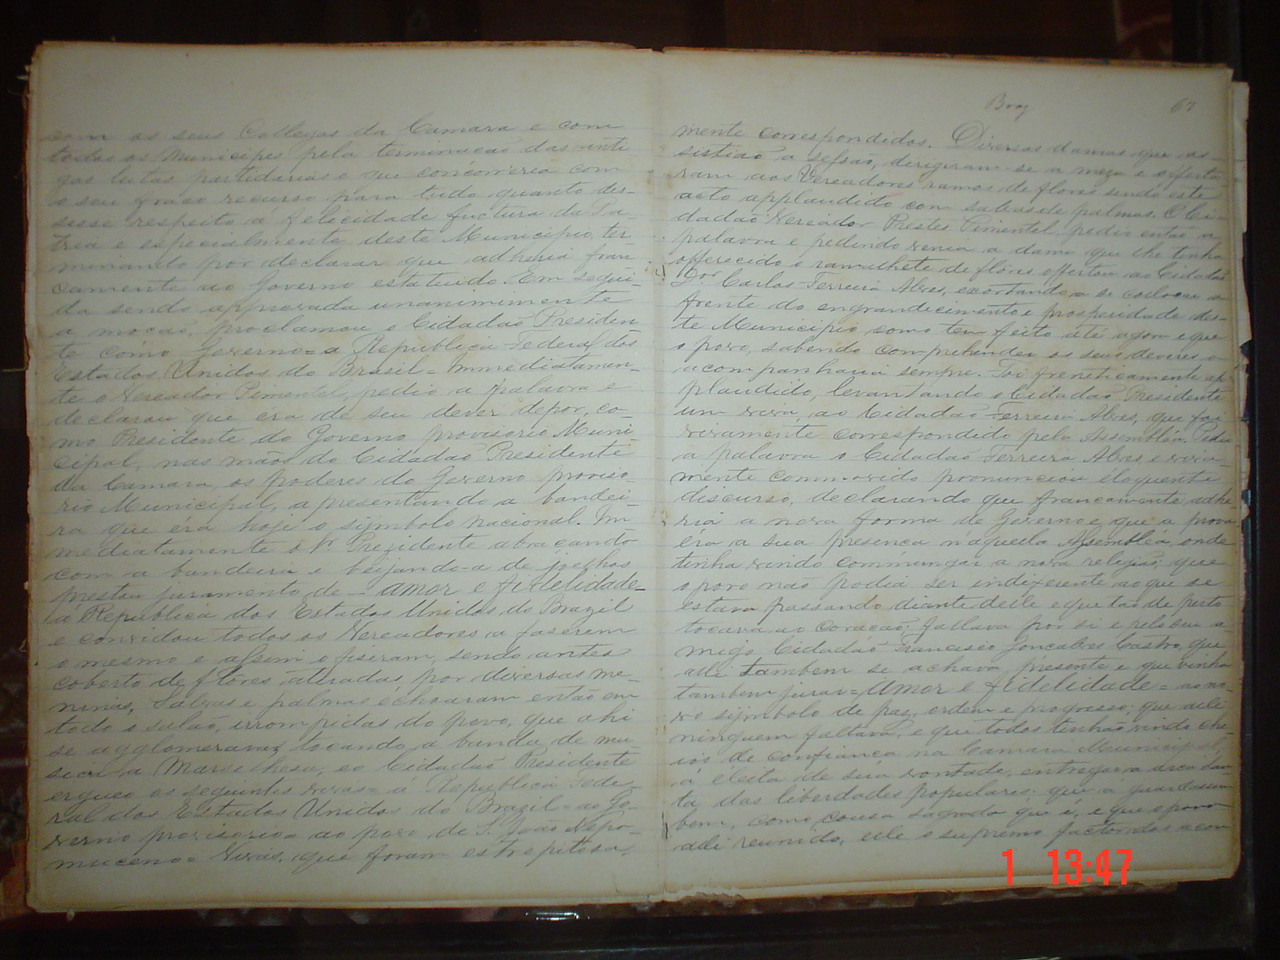 com os seus Collegas da Camara e com
todos os Municipes pela terminação das anti
gas lutas partidarias e que concorreria com
o seu fraco recurso para tudo quanto dis-
sesse respeito á felicidade fuctura da Pa-
tria e especialmente deste Municipio, ter-
minando por declarar que adheria fran
camente ao Governo estatuido. Em segui-
da sendo approvada unanimemente
a moção, proclamou o Cidadão Presiden-
te como Governo = a Republica Federal dos
Estados Unidos do Brasil = Immediatamen-
te o Vereador Pimentel, pedio a palavra e
declarou que era de seu dever depor, co-
mo Presidente do Governo provisorio Muni-
cipal, nas mãos do Cidadão Presidente
da Camara, os poderes do Governo proviso-
rio Municipal, apresentando a bandei-
ra que éra hoje o symbolo nacional. Im
mediatamente o Presidente abraçando
com a bandeira e beijando-a de joelhos
prestou juramento de = amor e fidelidade =
á Republica dos Estados Unidos do Brazil
e convidou todos os Vereadores a faserem
o mesmo e assim o fiseram, sendo antes
coberto de flôres atiradas por diversas me-
ninas, Salvas e palmas échoaram então em
todo o salão, irrompidas do povo, que ahi
se agglomerava, tocando a banda de mu-
sica a Marselhesa, e o Cidadão Presidente
ergueo os seguintes vivas = á Republica Fede-
ral dos Estados Unidos do Brazil = ao Go-
verno provisorio = ao povo de S. João Nepo-
muceno = Vivas, que foram estrepitosa-
67
mente correspondidos. Diversas damas que as-
sistião a sessão, derigiram-se a meza e offerta-
ram aos Vereadores ramos de flôres sendo este
acto applaudido com salvas de palmas. O Ci-
dadão Vereador Prestes Pimentel pedio então a
palavra e pedindo venia a dama que lhe tinha
offerecido o ramalhete de flôres offertou ao Cidadão
Dor Carlos Ferreira Alves, exortando-a se collocar a
frente do engrandecimento e prosperidade des-
te Municipio como tem feito até agora e que
o povo, sabendo comprehender os seus deveres o
acompanharia sempre. Foi freneticamente ap-
plaudido, levantando o Cidadão Presidente
um viva, ao Cidadão Ferreira Alves, que foi
vivamente correspondido pela Assemblea. Pedio
a palavra o Cidadão Ferreira Alves e viva-
mente commovido pronunciou eloquente
discurso, declarando que francamente adhe
ria a nova forma de Governo e que a prova
era a sua presença naquella Assemblea, onde
tinha vindo commungar a nova religião, que
o povo não podia ser indiferente ao que se
estava passando diante delle e que tão de perto
tocava ao coração, fallava por si e pelo seu a-
migo Cidadão Francisco Gonçalves Castro, que
alli tambem se achava presente e que vinha
tambem jurar = Amor e Fidelidade = ao no-
vo symbolo de paz, ordem e progresso; que alli
ninguem faltava, e que todos tinhão vindo che-
ios de confiança na Camara Municipal,
á eleita de sua vontade, entregar a
ta das liberdades populares, que a guardassem
bem, como cousa sagrada que é, e que o povo
alli reunido, elle o supremo factor dos acon
1 13:47